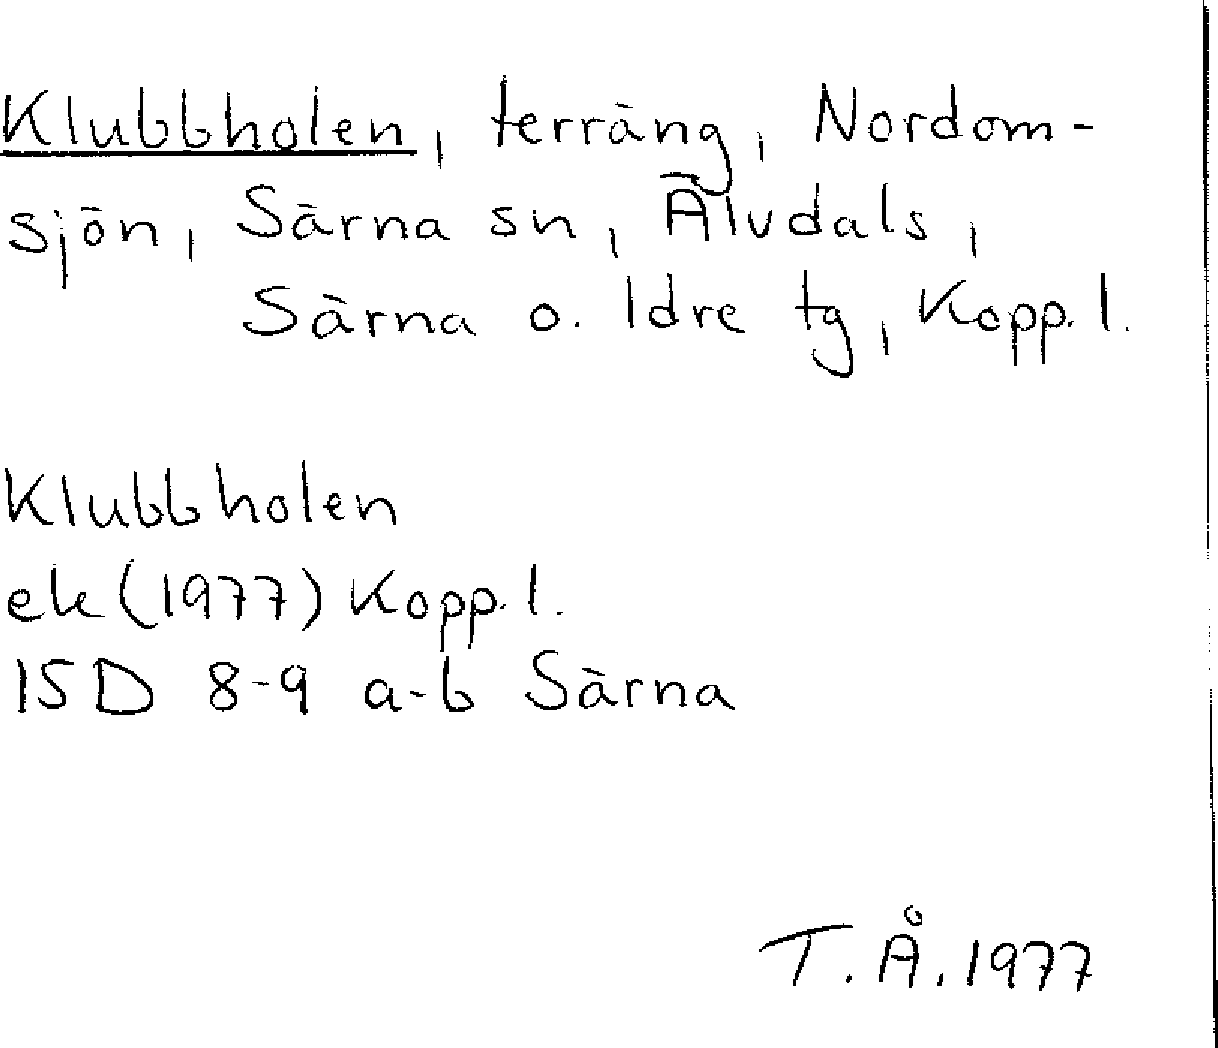 Klubbholen, terräng, Nordom-
sjön, Särna sn, Älvdals,
Särna o. Idre tg, Kopp. l.
Klubbholen
ek (1977) Kopp. l.
15D 8-9 a-b Särna
T. Å. 1977